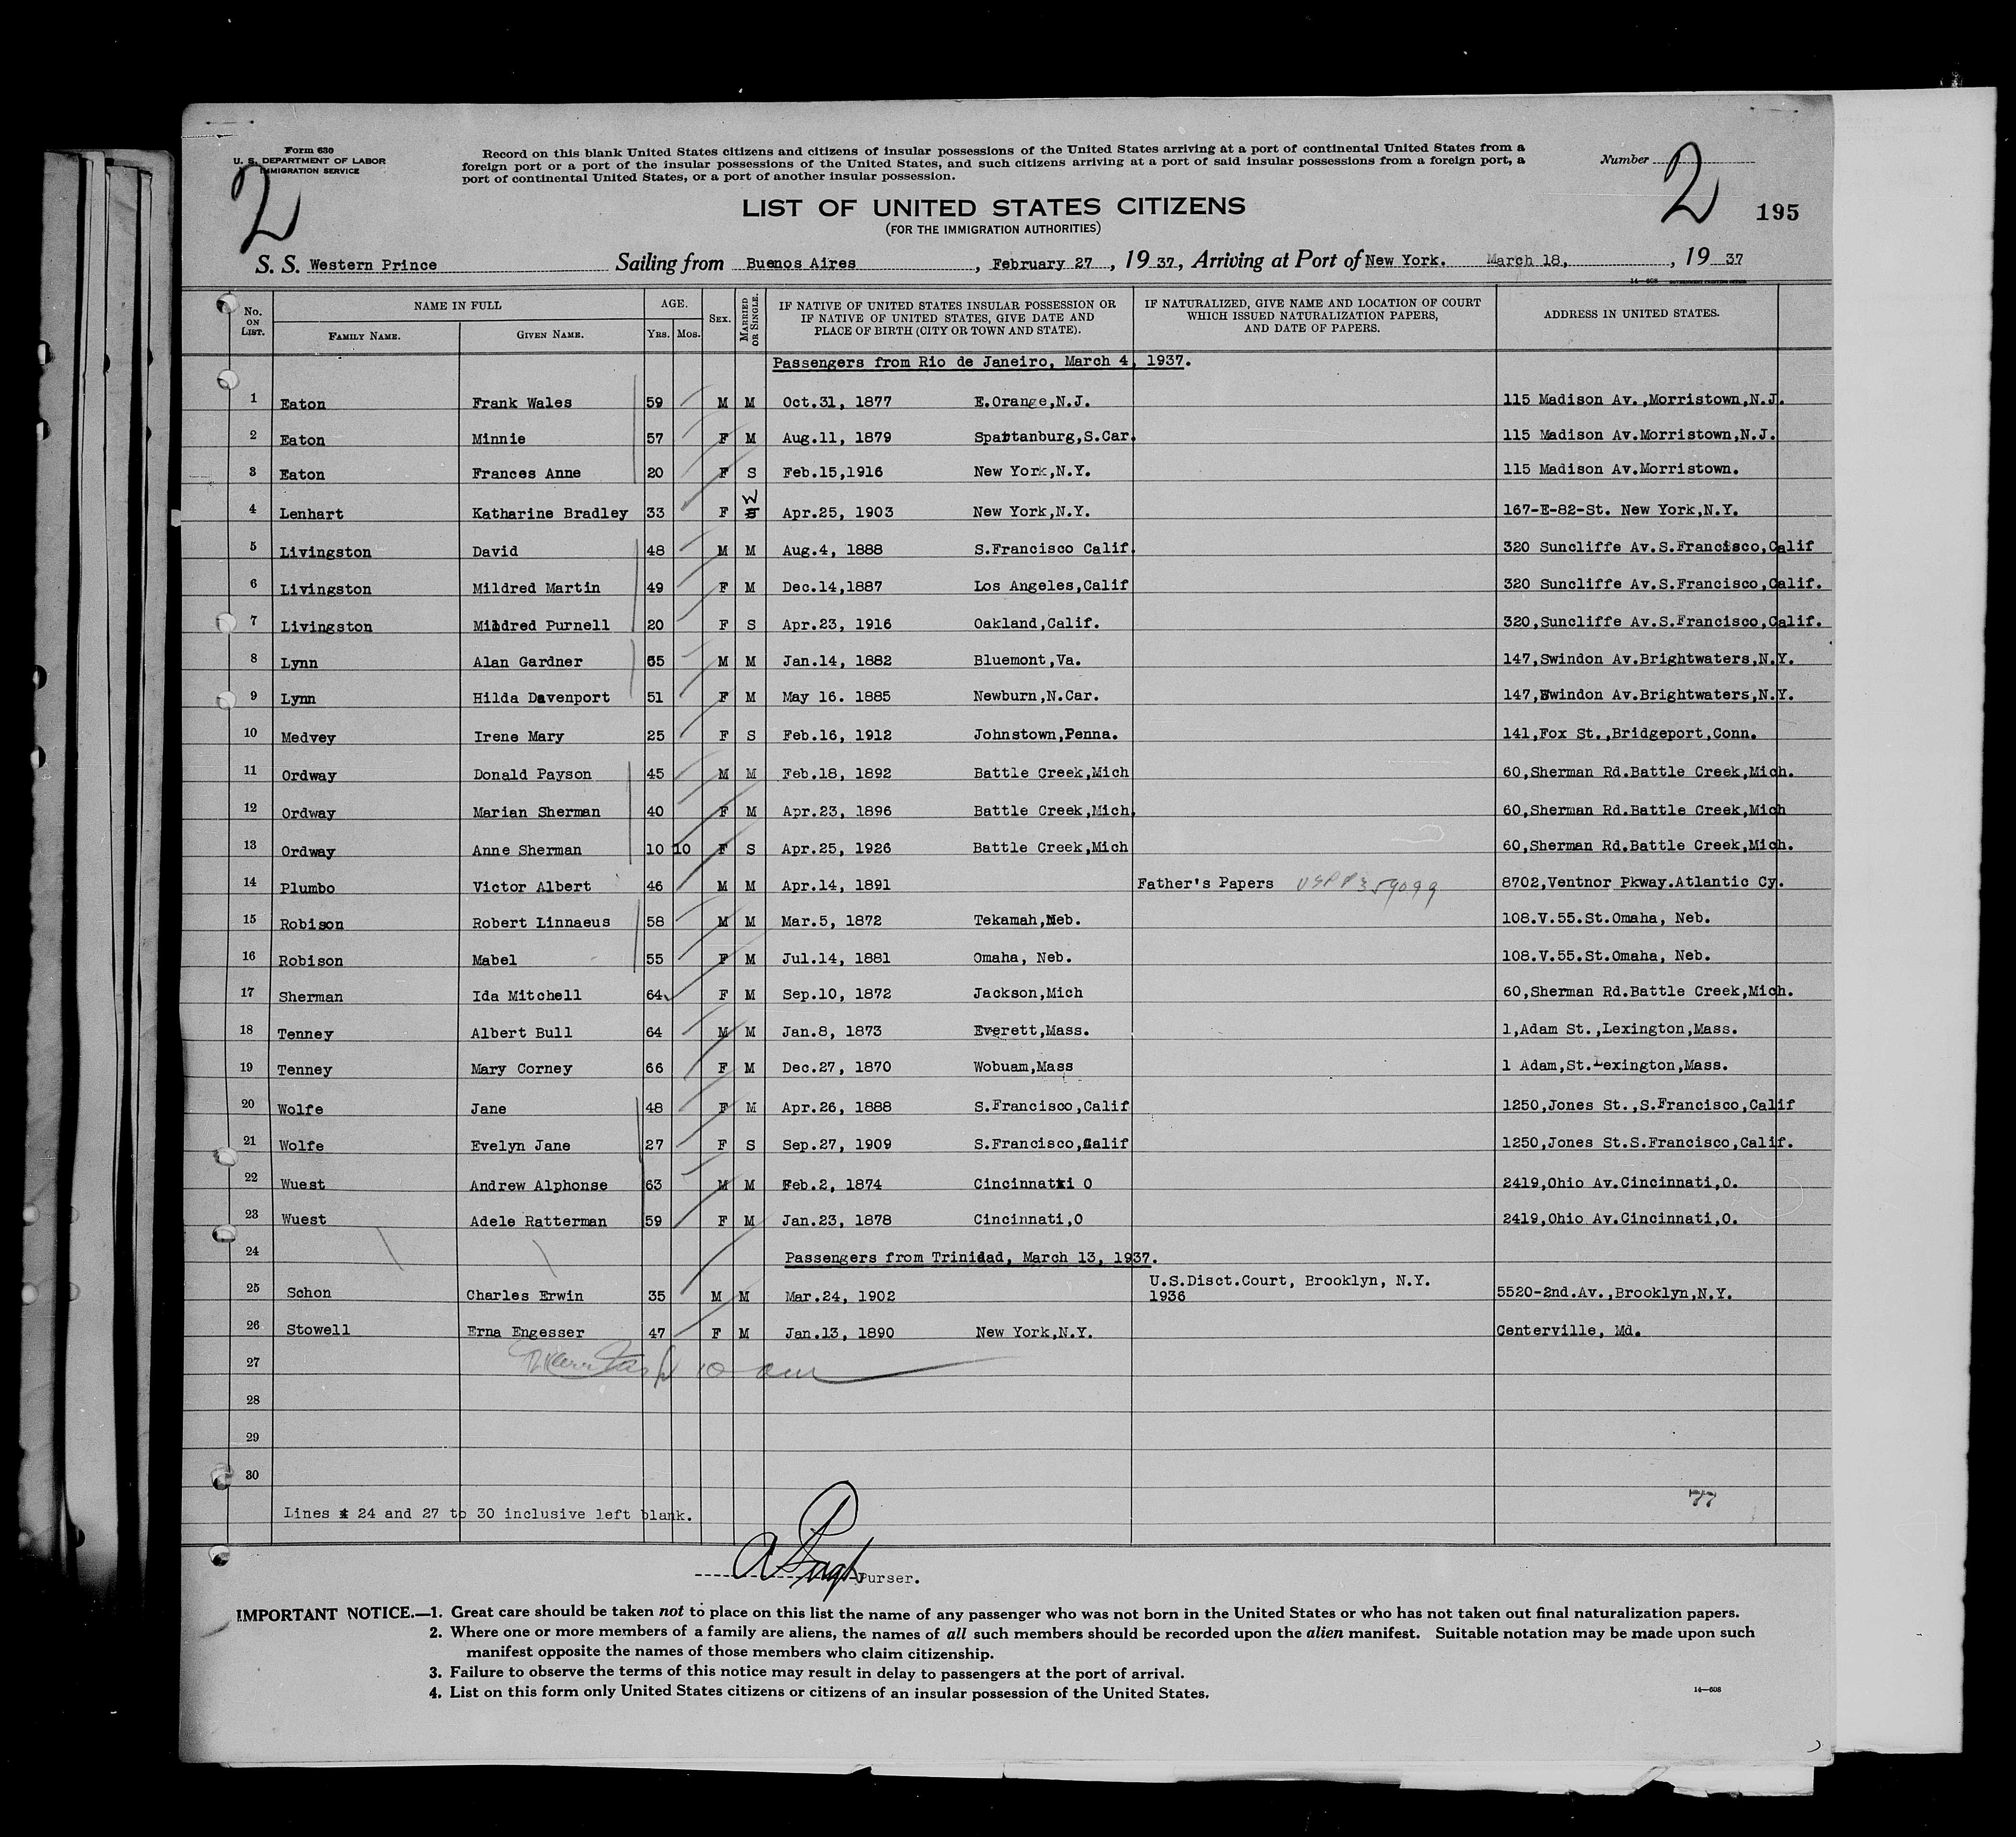 Form 630
U. S. DEPARTMENT OF LABOR
IMMIGRATION SERVICE
Record on this blank United States citizens and citizens of insular possessions of the United States arriving at a port of continental United States from a
foreign port or a port of the insular possessions of the United States, and such citizens arriving at a port of said insular possessions from a foreign port, a
port of continental United States, or a port of another insular possession.
Number
2 2 195
LIST OF UNITED STATES CITIZENS
(FOR THE IMMIGRATION AUTHORITIES)
S. S. Western Prince Sailing from Buenos Aires, February 27, 1937, Arriving at Port of New York. March 18, , 19 37
14—608 GOVERNMENT PRINTING OFFICE
No. ON LIST. NAME IN FULL FAMILY NAME. GIVEN NAME. AGE. YRS. MOS. SEX. MARRIED OR SINGLE. IF NATIVE OF UNITED STATES INSULAR POSSESSION OR IF NATIVE OF UNITED STATES, GIVE DATE AND PLACE OF BIRTH (CITY OR TOWN AND STATE). IF NATURALIZED, GIVE NAME AND LOCATION OF COURT WHICH ISSUED NATURALIZATION PAPERS, AND DATE OF PAPERS. ADDRESS IN UNITED STATES.
Passengers from Rio de Janeiro, March 4, 1937.
1 Eaton Frank Wales 59 M M Oct.31, 1877 E.Orange,N.J. 115 Madison Av.,Morristown,N.J.
2 Eaton Minnie 57 F M Aug.11, 1879 Spartanburg,S.Car. 115 Madison Av.Morristown,N.J.
3 Eaton Frances Anne 20 F S Feb.15,1916 New York,N.Y. 115 Madison Av.Morristown.
4 Lenhart Katharine Bradley 33 F S W Apr.25, 1903 New York,N.Y. 167-E-82-St. New York,N.Y.
5 Livingston David 48 M M Aug.4, 1888 S.Francisco Calif. 320 Suncliffe Av.S.Francisco,Calif
6 Livingston Mildred Martin 49 F M Dec.14,1887 Los Angeles,Calif 320 Suncliffe Av.S.Francisco,Calif.
7 Livingston Mildred Purnell 20 F S Apr.23, 1916 Oakland,Calif. 320,Suncliffe Av.S.Francisco,Calif.
8 Lynn Alan Gardner 55 M M Jan.14, 1882 Bluemont,Va. 147,Swindon Av.Brightwaters,N.Y.
9 Lynn Hilda Davenport 51 F M May 16. 1885 Newburn,N.Car. 147,Swindon Av.Brightwaters,N.Y.
10 Medvey Irene Mary 25 F S Feb.16, 1912 Johnstown,Penna. 141,Fox St.,Bridgeport,Conn.
11 Ordway Donald Payson 45 M M Feb.18, 1892 Battle Creek,Mich 60,Sherman Rd.Battle Creek,Mich.
12 Ordway Marian Sherman 40 F M Apr.23, 1896 Battle Creek,Mich. 60,Sherman Rd.Battle Creek,Mich
13 Ordway Anne Sherman 10 10 F S Apr.25, 1926 Battle Creek,Mich 60,Sherman Rd.Battle Creek,Mich.
14 Plumbo Victor Albert 46 M M Apr.14, 1891 Father's Papers USPP359099 8702,Ventnor Pkway.Atlantic Cy.
15 Robison Robert Linnaeus 58 M M Mar.5, 1872 Tekamah,Neb. 108.V.55.St.Omaha, Neb.
16 Robison Mabel 55 F M Jul.14, 1881 Omaha, Neb. 108.V.55.St.Omaha, Neb.
17 Sherman Ida Mitchell 64 F M Sep.10, 1872 Jackson,Mich 60,Sherman Rd.Battle Creek,Mich.
18 Tenney Albert Bull 64 M M Jan.8, 1873 Everett,Mass. 1,Adam St.,Lexington,Mass.
19 Tenney Mary Corney 66 F M Dec.27, 1870 Wobuam,Mass 1 Adam,St.Lexington,Mass.
20 Wolfe Jane 48 F M Apr.26, 1888 S.Francisco,Calif 1250,Jones St.,S.Francisco,Calif
21 Wolfe Evelyn Jane 27 F S Sep.27, 1909 S.Francisco,Calif 1250,Jones St.S.Francisco,Calif.
22 Wuest Andrew Alphonse 63 M M Feb.2, 1874 Cincinnati O 2419,Ohio Av.Cincinnati,O.
23 Wuest Adele Ratterman 59 F M Jan.23, 1878 Cincinnati,O 2419,Ohio Av.Cincinnati,O.
24 Passengers from Trinidad, March 13, 1937.
25 Schon Charles Erwin 35 M M Mar.24, 1902 U.S.Disct.Court, Brooklyn, N.Y. 1936 5520-2nd.Av.,Brooklyn,N.Y.
26 Stowell Erna Engesser 47 F M Jan.13, 1890 New York,N.Y. Centerville, Md.
27
28
29
30
77
Lines 24 and 27 to 30 inclusive left blank.
Purser.
IMPORTANT NOTICE.—1. Great care should be taken not to place on this list the name of any passenger who was not born in the United States or who has not taken out final naturalization papers.
2. Where one or more members of a family are aliens, the names of all such members should be recorded upon the alien manifest. Suitable notation may be made upon such
manifest opposite the names of those members who claim citizenship.
3. Failure to observe the terms of this notice may result in delay to passengers at the port of arrival.
4. List on this form only United States citizens or citizens of an insular possession of the United States.
14—608